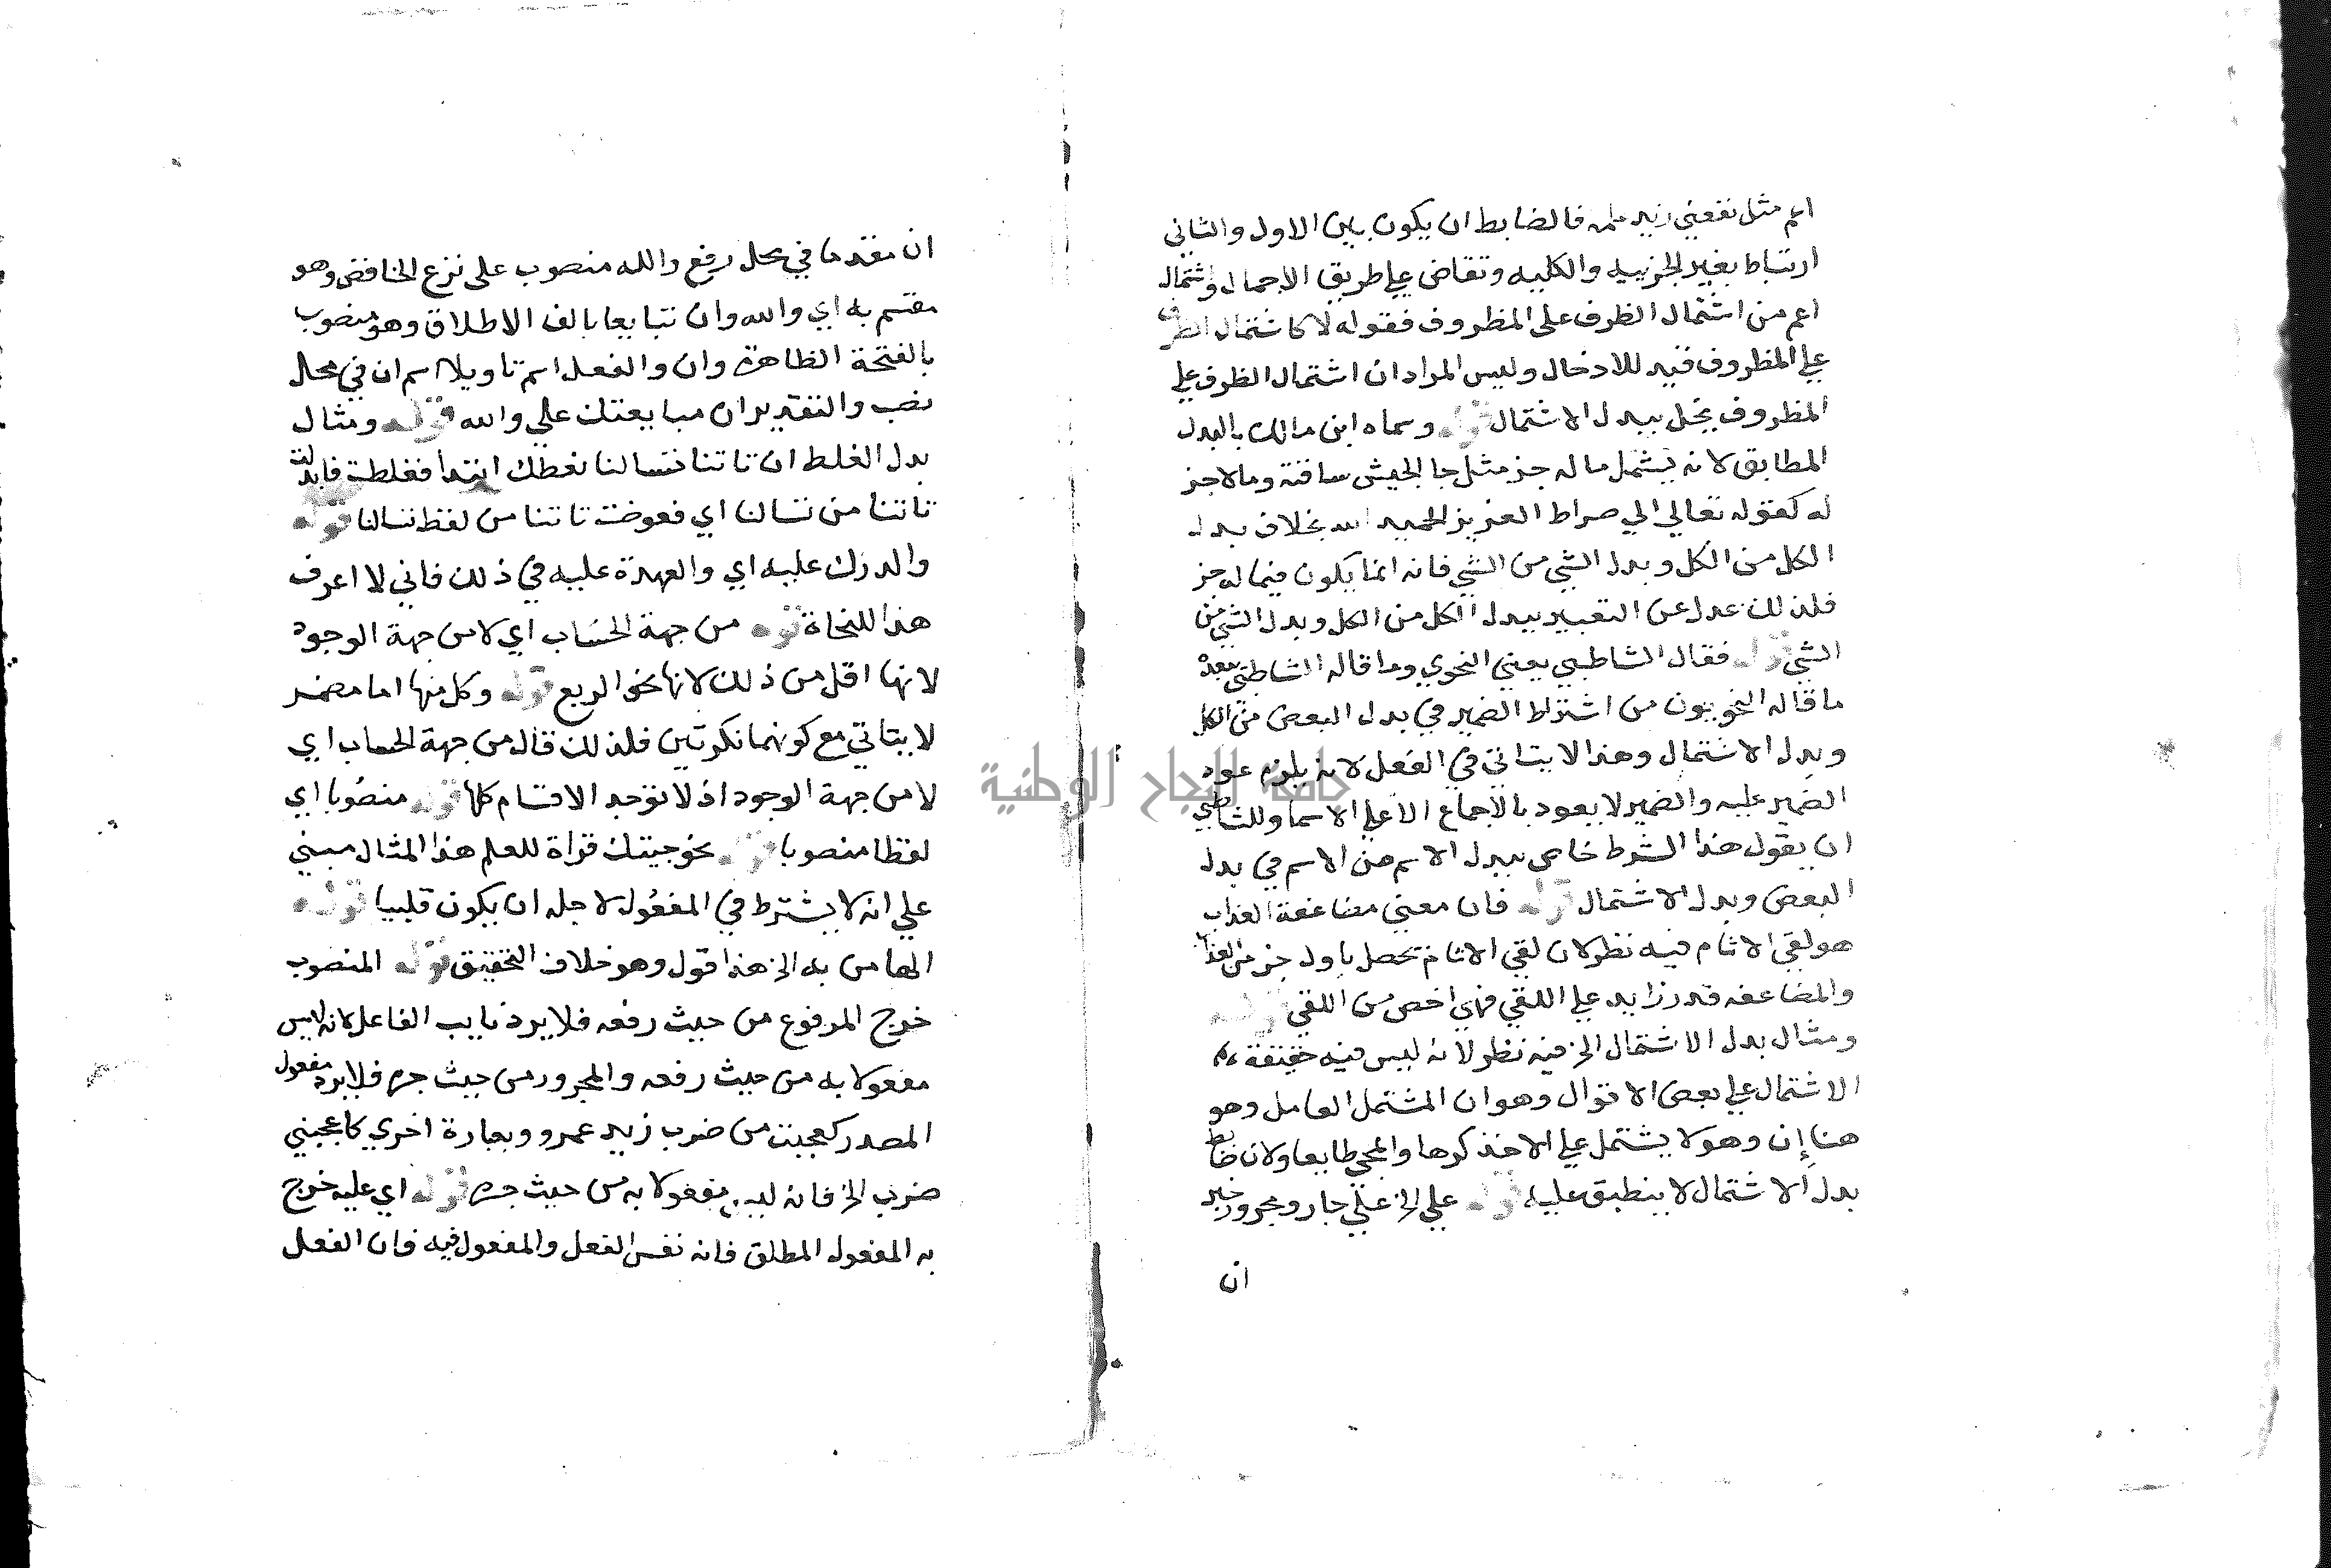 اعم مثل نفعني زيد علمه فالضابط ان يكون بين الاول والثاني
ارتباط بغير الجزييه والكليه وتقاض علي طريق الاجمال واشتمال
اعم من اشتمال الظرف على المظروف فقوله لا كاشتمال الظرف
علي المظروف قيد للادخال وليس المراد ان اشتمال الظرف علي
المظروف يخل ببدل الاشتمال قوله وسماه ابن مالك بالبدل
المطابق لانه يشمل ما له جز مثل جا الجيش ساقته وما لا جز
له كقوله تعالي الي صراط العزيز الحميد الله بخلاف بدل
الكل من الكل وبدل الشي من الشي فانه انما يكون فيما له جز
فلذلك عدل عن التعبير ببدل الكل من الكل وبدل الشي من
الشي قوله فقال الشاطبي يعني النحوي وما قاله الشاطبي بعده
ما قاله النحويون من اشتراط الضمير في بدل البعض من الكل
وبدل الاشتمال وهذا لا يتاتي في الفعل لانه يلزم عود
الضمير عليه والضمير لا يعود بالاجماع الا علي الاسما وللشاطبي
ان يقول هذا الشرط خاص ببدل الاسم من الاسم في بدل
البعض وبدل الاشتمال قوله فان معني مضاعفة العذاب
هو لقي الاثام فيه نظر لان لقي الاثام تحصل باول جز من العذاب
والمضاعفه قدر زايد علي اللقي فهي اخص من اللقي قوله
ومثال بدل الاشتمال الخ فيه نظر لانه ليس فيه حقيقة
الاشتمال علي بعض الاقوال وهو ان المشتمل العامل وهو
هنا إن وهو لا يشتمل علي الاخذ كرها والمجي طايعا ولان ضابط
بدل الاشتمال لا ينطبق عليه قوله علي الخ علي جار ومجرور خبر
ان
ان مقدما في محل رفع والله منصوب على نزع الخافض وهو
مقسم به اي والله وان تبايعا بالف الاطلاق وهو منصوب
بالفتحة الظاهرة وان والفعل اسم تاويلا اسم ان في محل
نصب والتقدير ان مبايعتك علي والله قوله ومثال
بدل الغلط ان تاتنا تسالنا نعطك ابتدا فغلطت فابدلت
تاتنا من تسالنا اي فعوضت تاتنا من لفظ تسالنا قوله
والدرك عليه اي والعهدة عليه في ذلك فاني لا اعرف
هذا للنحاة قوله من جهة الحساب اي لا من جهة الوجود
لانها اقل من ذلك لانها نحو الربع قوله وكل منها اما مضمر
لا يتاتي مع كونهما نكرتين فلذلك قال من جهة الحساب اي
لا من جهة الوجود اذ لا توجد الاقسام كلها قوله منصوبا اي
لفظا منصوبا قوله نحو جيتك قراة للعلم هذا المثال مبني
علي انه لا يشترط في المفعول لاجله ان يكون قلبيا قوله
الها من به الخ هذا قول وهو خلاف التحقيق قوله المنصوب
خرج المرفوع من حيث رفعه فلا يرد نايب الفاعل لانه ليس
مفعولا به من حيث رفعه والمجرور من حيث جره فلا يرد مفعول
المصدر كعجبت من ضرب زيد عمرو وبعبارة اخري كاعجبني
ضرب الخ فانه ليس مفعولا به من حيث جره قوله اي عليه خرج
به المفعول المطلق فانه نفس الفعل والمفعول فيه فان الفعل
جامعة النجاح الوطنية